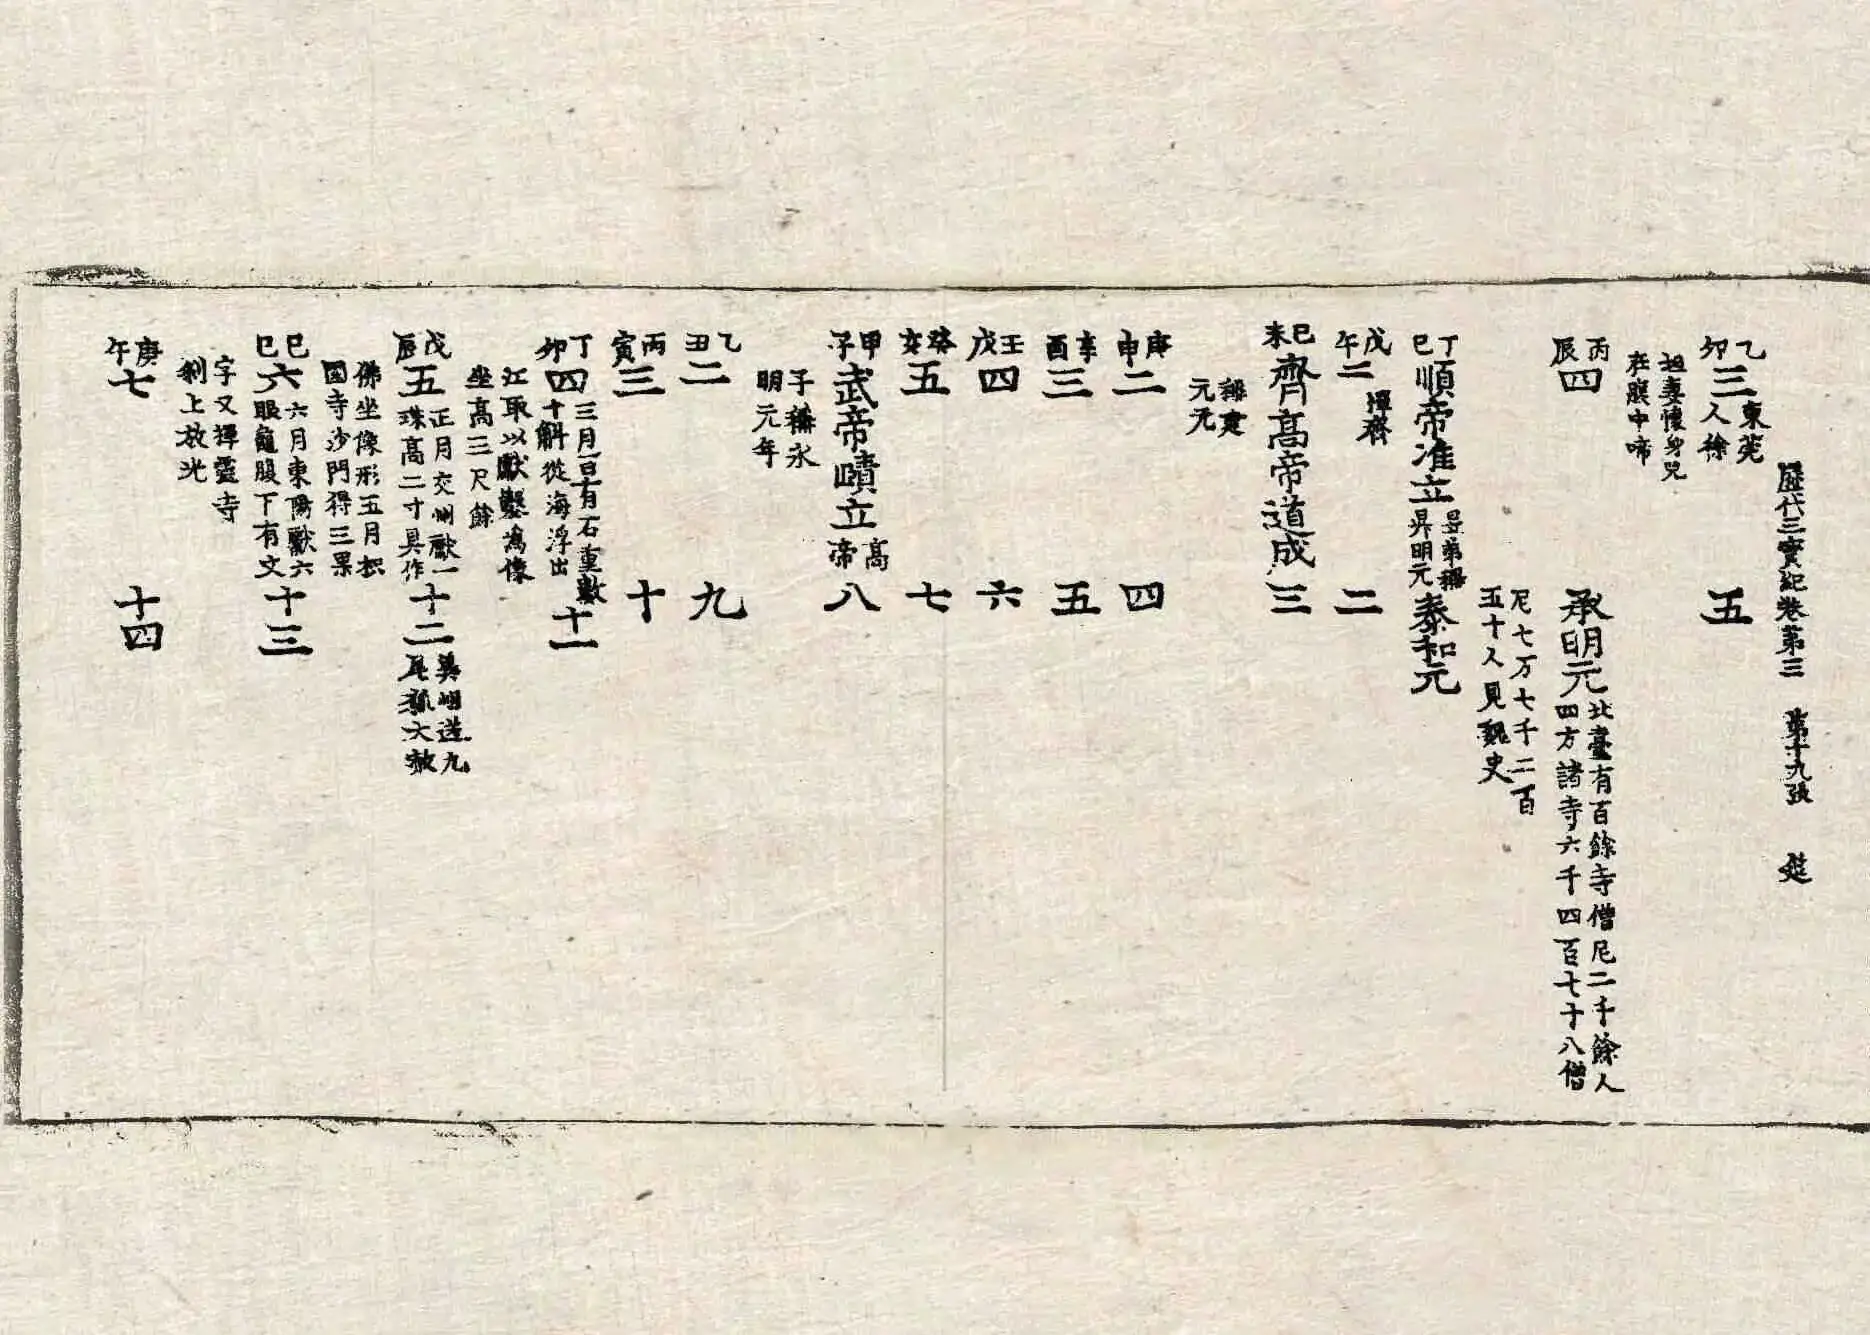 歷代三寶紀卷第三　第十九張　莚
乙卯三東莞人徐
坦妻懷身兒在腹中啼
五
丙辰四
承明元北臺有百餘寺僧尼二千餘人四方諸寺六千四百七十八僧
尼七万七千二百五十人見魏史
丁巳順帝准立昱弟稱昇明元
泰和元
戊午二禪齊
二
己未齊高帝道成
三
稱建元元
庚申二
四
辛酉三
五
壬戌四
六
癸亥五
七
甲子武帝賾立高帝
八
子稱永明元年
乙丑二
九
丙寅三
十
丁卯四三月一日有石重數十斛從海浮出
十一
江取以獻鑿為像坐高三尺餘
戊辰五正月交州獻一珠高二寸具作
十二
佛坐像形五月枳園寺沙門得三果
己巳六六月東陽獻六眼龜腹下有文
十三
字又禪靈寺刹上放光
庚午七
十四